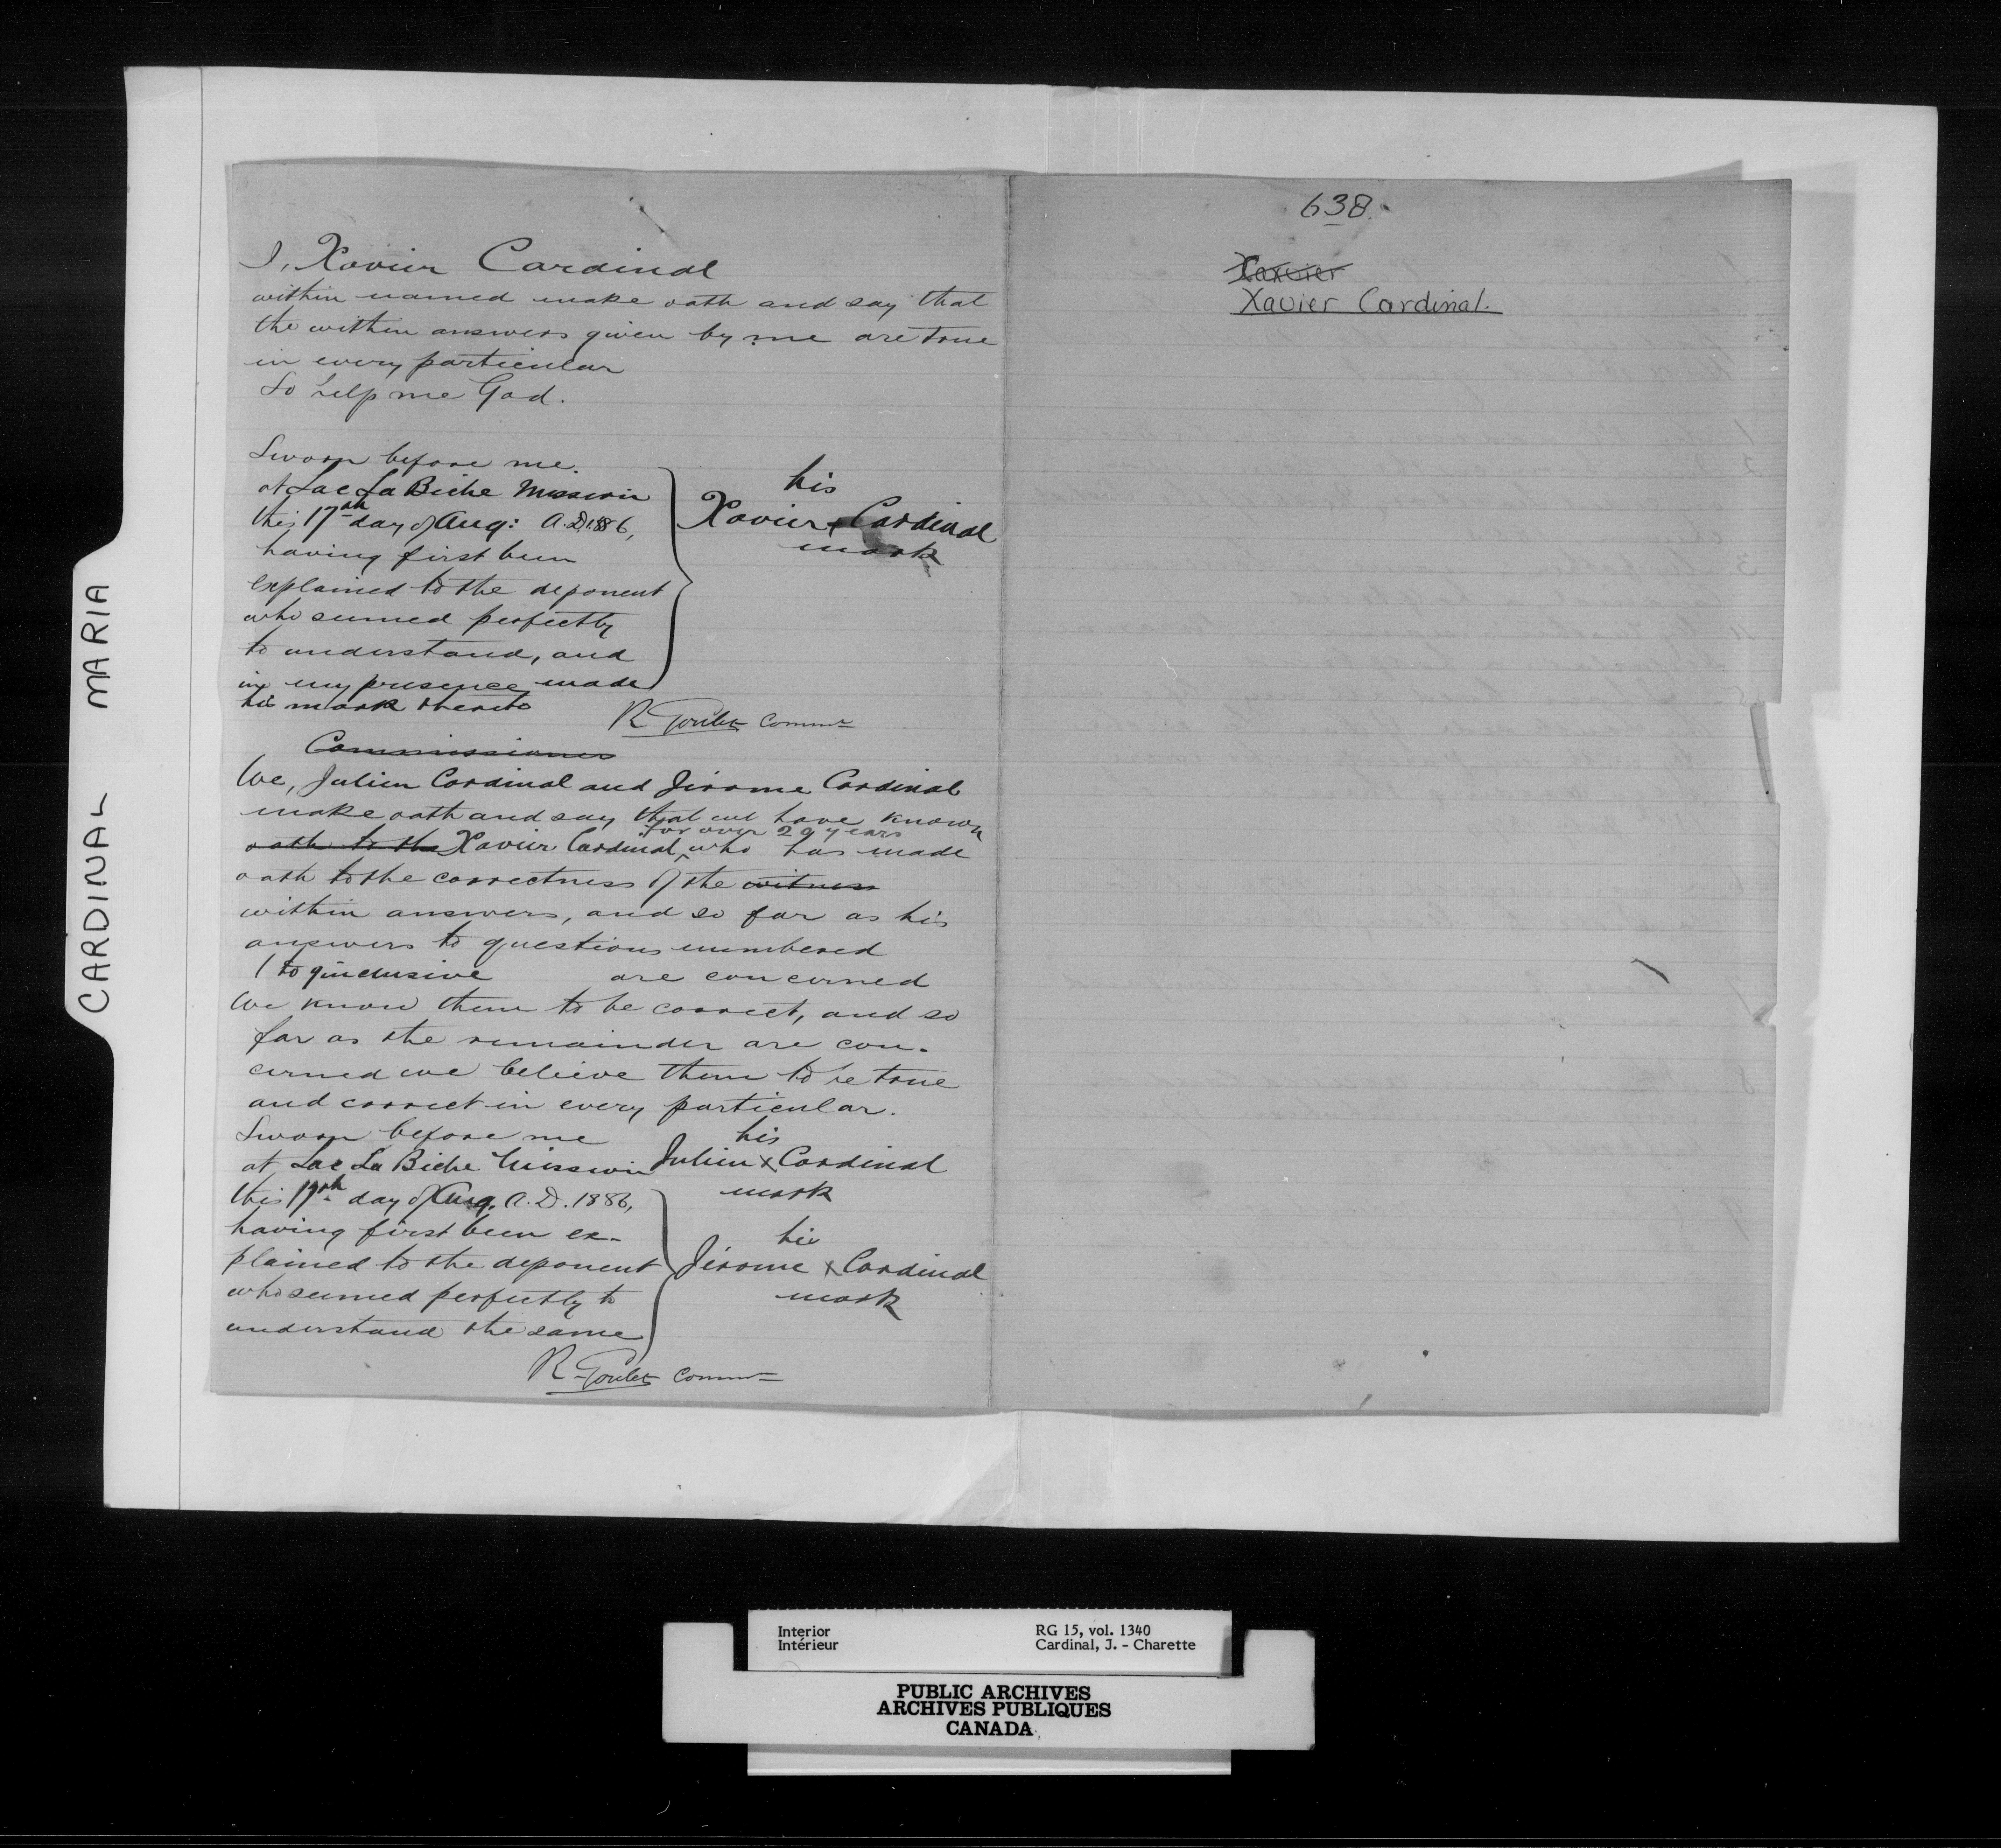 CARDINAL MARIA
I, Xavier Cardinal
within named make oath and say that
the within answers given by me are true
in every particular
So help me God.
Sworn before me.
at Lac La Biche Mission
this 17th day of Aug: A.D. 1886,
having first been
explained to the deponent
who seemed perfectly
to understand, and
in my presence made
his mark thereto
his
Xavier x Cardinal
mark
R Goulet Commr
Commissioner
We, Julien Cardinal and Jérome Cardinal
make oath and say that we have known
for over 29 years
oath to the Xavier Cardinal, who has made
oath to the correctness of the witness
within answers, and so far as his
answers to questions numbered
1 to 9 inclusive are concerned
We know them to be correct, and so
far as the remainder are con-
cerned we believe them to be true
and correct in every particular.
Sworn before me
at Lac La Biche Mission
this 17th day of Aug. A.D. 1886,
having first been ex-
plained to the deponent
who seemed perfectly to
understand the same
his
Julien x Cardinal
mark
his
Jérome x Cardinal
mark
R Goulet Commr
638.
Xavier
Xavier Cardinal.
Interior
Intérieur
RG 15, vol. 1340
Cardinal, J. - Charette
PUBLIC ARCHIVES
ARCHIVES PUBLIQUES
CANADA